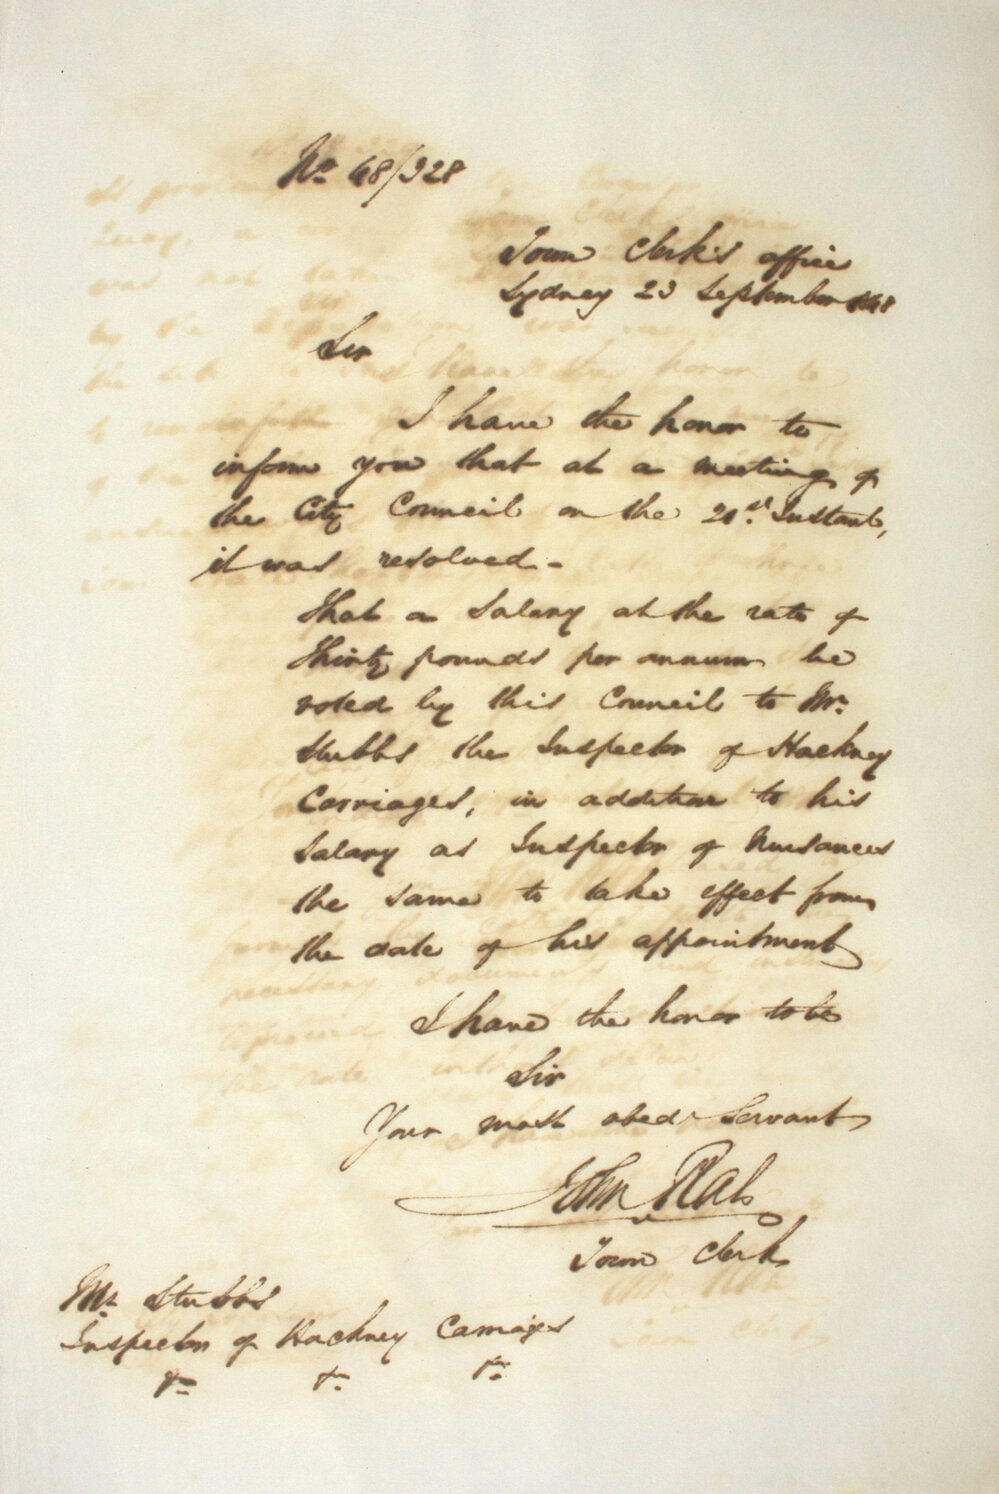 No 48/328
Town Clerk's office
Sydney 23 September 1848
Sir
I have the honor to
inform you that at a meeting of
the City Council on the 21st Instant,
it was resolved -
That a Salary at the rate of
Thirty pounds per annum be
voted by this Council to Mr.
Stubbs the Inspector of Hackney
Carriages, in addition to his
Salary as Inspector of Nuisances
the same to take effect from
the date of his appointment
I have the honor to be
Sir
Your most obedt Servant
John Rae
Town Clerk
Mr Stubbs
Inspector of Hackney Carriages
&c &c &c